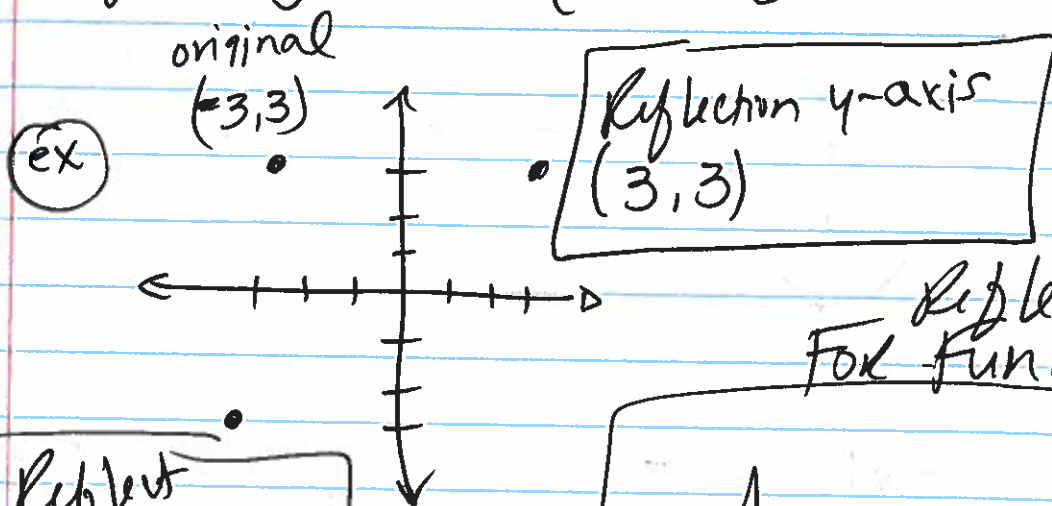 original
(-3,3)
ex
Reflection y-axis
(3,3)
For Fun
Reflect